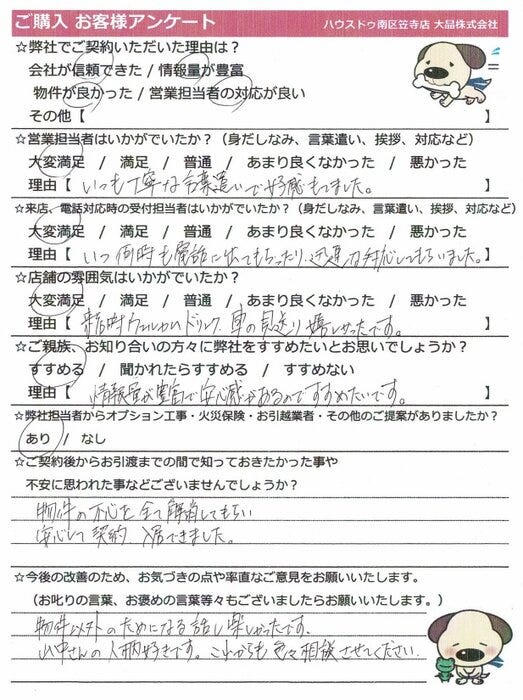 ご購入 お客様アンケート
ハウスドゥ南区笠寺店 大品株式会社
☆弊社でご契約いただいた理由は？
会社が信頼できた / 情報量が豊富
物件が良かった / 営業担当者の対応が良い
その他【 】
☆営業担当者はいかがでいたか？（身だしなみ、言葉遣い、挨拶、対応など）
大変満足 / 満足 / 普通 / あまり良くなかった / 悪かった
理由【 いつも丁寧な言葉遣いで好感もてました。 】
☆来店、電話対応時の受付担当者はいかがでいたか？（身だしなみ、言葉遣い、挨拶、対応など）
大変満足 / 満足 / 普通 / あまり良くなかった / 悪かった
理由【 いつ何時も電話に出てもらったり、迅速な対応してもらいました。】
☆店舗の雰囲気はいかがでいたか？
大変満足 / 満足 / 普通 / あまり良くなかった / 悪かった
理由【 来店時ウェルカムドリンク、車の見送り嬉しかったです。 】
☆ご親族、お知り合いの方々に弊社をすすめたいとお思いでしょうか？
すすめる / 聞かれたらすすめる / すすめない
理由【 情報量が豊富で安心感があるのですすめたいです。 】
☆弊社担当者からオプション工事・火災保険・お引越業者・その他のご提案がありましたか？
あり / なし
☆ご契約後からお引渡までの間で知っておきたかった事や
不安に思われた事などございませんでしょうか？
物件の不安を全て解消してもらい
安心して契約、入居できました。
☆今後の改善のため、お気づきの点や率直なご意見をお願いいたします。
（お叱りの言葉、お褒めの言葉等々もございましたらお願いいたします。）
物件以外のためになる話し楽しかったです。
山中さんの人柄好きです。これからも色々相談させてください。